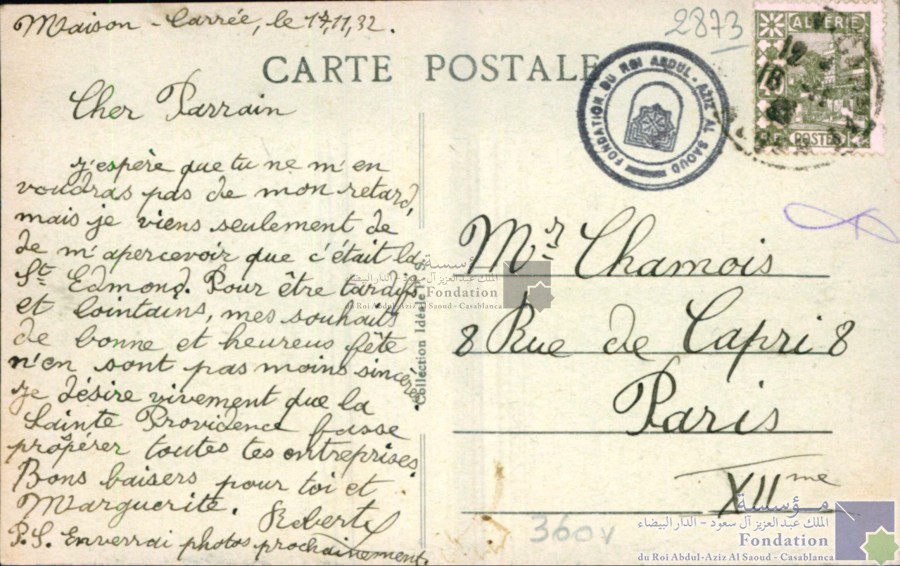 Maison-Carrée, le 17,11,32.
2873
CARTE POSTALE
FONDATION DU ROI ABDUL-AZIZ AL SAOUD
ALGÉRIE
POSTES
Cher Parrain
J'espère que tu ne m'en
voudras pas de mon retard,
mais je viens seulement de
de m'apercevoir que c'était la
St Edmond. Pour être tardifs
et lointains, mes souhaits
de bonne et heureuse fête
n'en sont pas moins sincères.
Je désire vivement que la
Sainte Providence fasse
propérer toutes tes entreprises.
Bons baisers pour toi et
Marguerite. Robert
P.S. Enverrai photos prochainement.
Collection Idéale
Mr. Chamois
8 Rue de Capri 8
Paris
XIIme
360v
مؤسسة
الملك عبد العزيز آل سعود - الدار البيضاء
Fondation
du Roi Abdul-Aziz Al Saoud - Casablanca
الملك عبد العزيز آل سعود - الدار البيضاء
Fondation
du Roi Abdul-Aziz Al Saoud - Casablanca